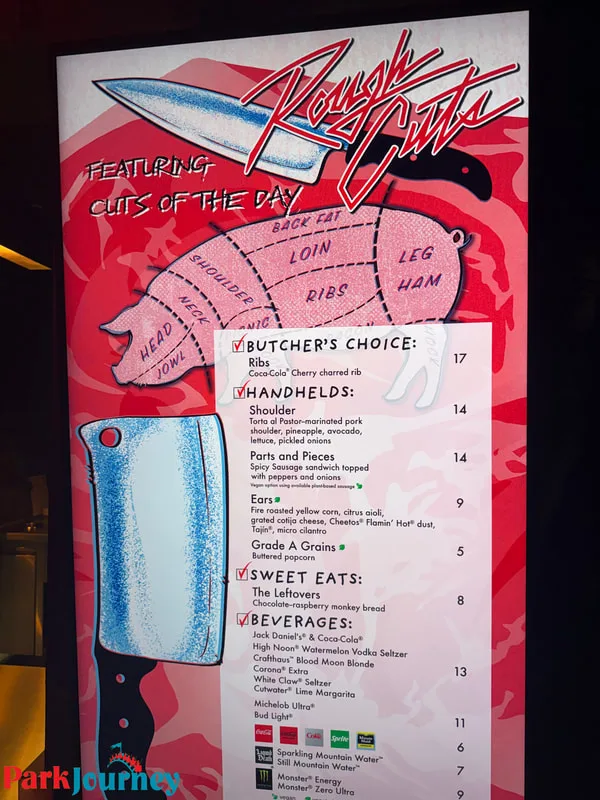 Rough
Cuts
FEATURING
CUTS OF THE DAY
BACK FAT
LOIN
LEG
HAM
SHOULDER
RIBS
NECK
HEAD
JOWL
BUTCHER'S CHOICE:
Ribs 17
Coca-Cola® Cherry charred rib
HANDHELDS:
Shoulder 14
Torta al Pastor–marinated pork
shoulder, pineapple, avocado,
lettuce, pickled onions
Parts and Pieces 14
Spicy Sausage sandwich topped
with peppers and onions
Vegan option using available plant-based sausage
Ears 9
Fire roasted yellow corn, citrus aioli,
grated cotija cheese, Cheetos® Flamin' Hot® dust,
Tajín®, micro cilantro
Grade A Grains 5
Buttered popcorn
SWEET EATS:
The Leftovers 8
Chocolate-raspberry monkey bread
BEVERAGES:
Jack Daniel's® & Coca-Cola®
High Noon® Watermelon Vodka Seltzer
Crafthaus™ Blood Moon Blonde
Corona® Extra 13
White Claw® Seltzer
Cutwater® Lime Margarita
Michelob Ultra®
Bud Light® 11
Coca-Cola Coke Sprite 6
Liquid Death Sparkling Mountain Water™
Still Mountain Water™ 7
MONSTER Monster® Energy 9
Monster® Zero Ultra 9
vegan
ParkJourney